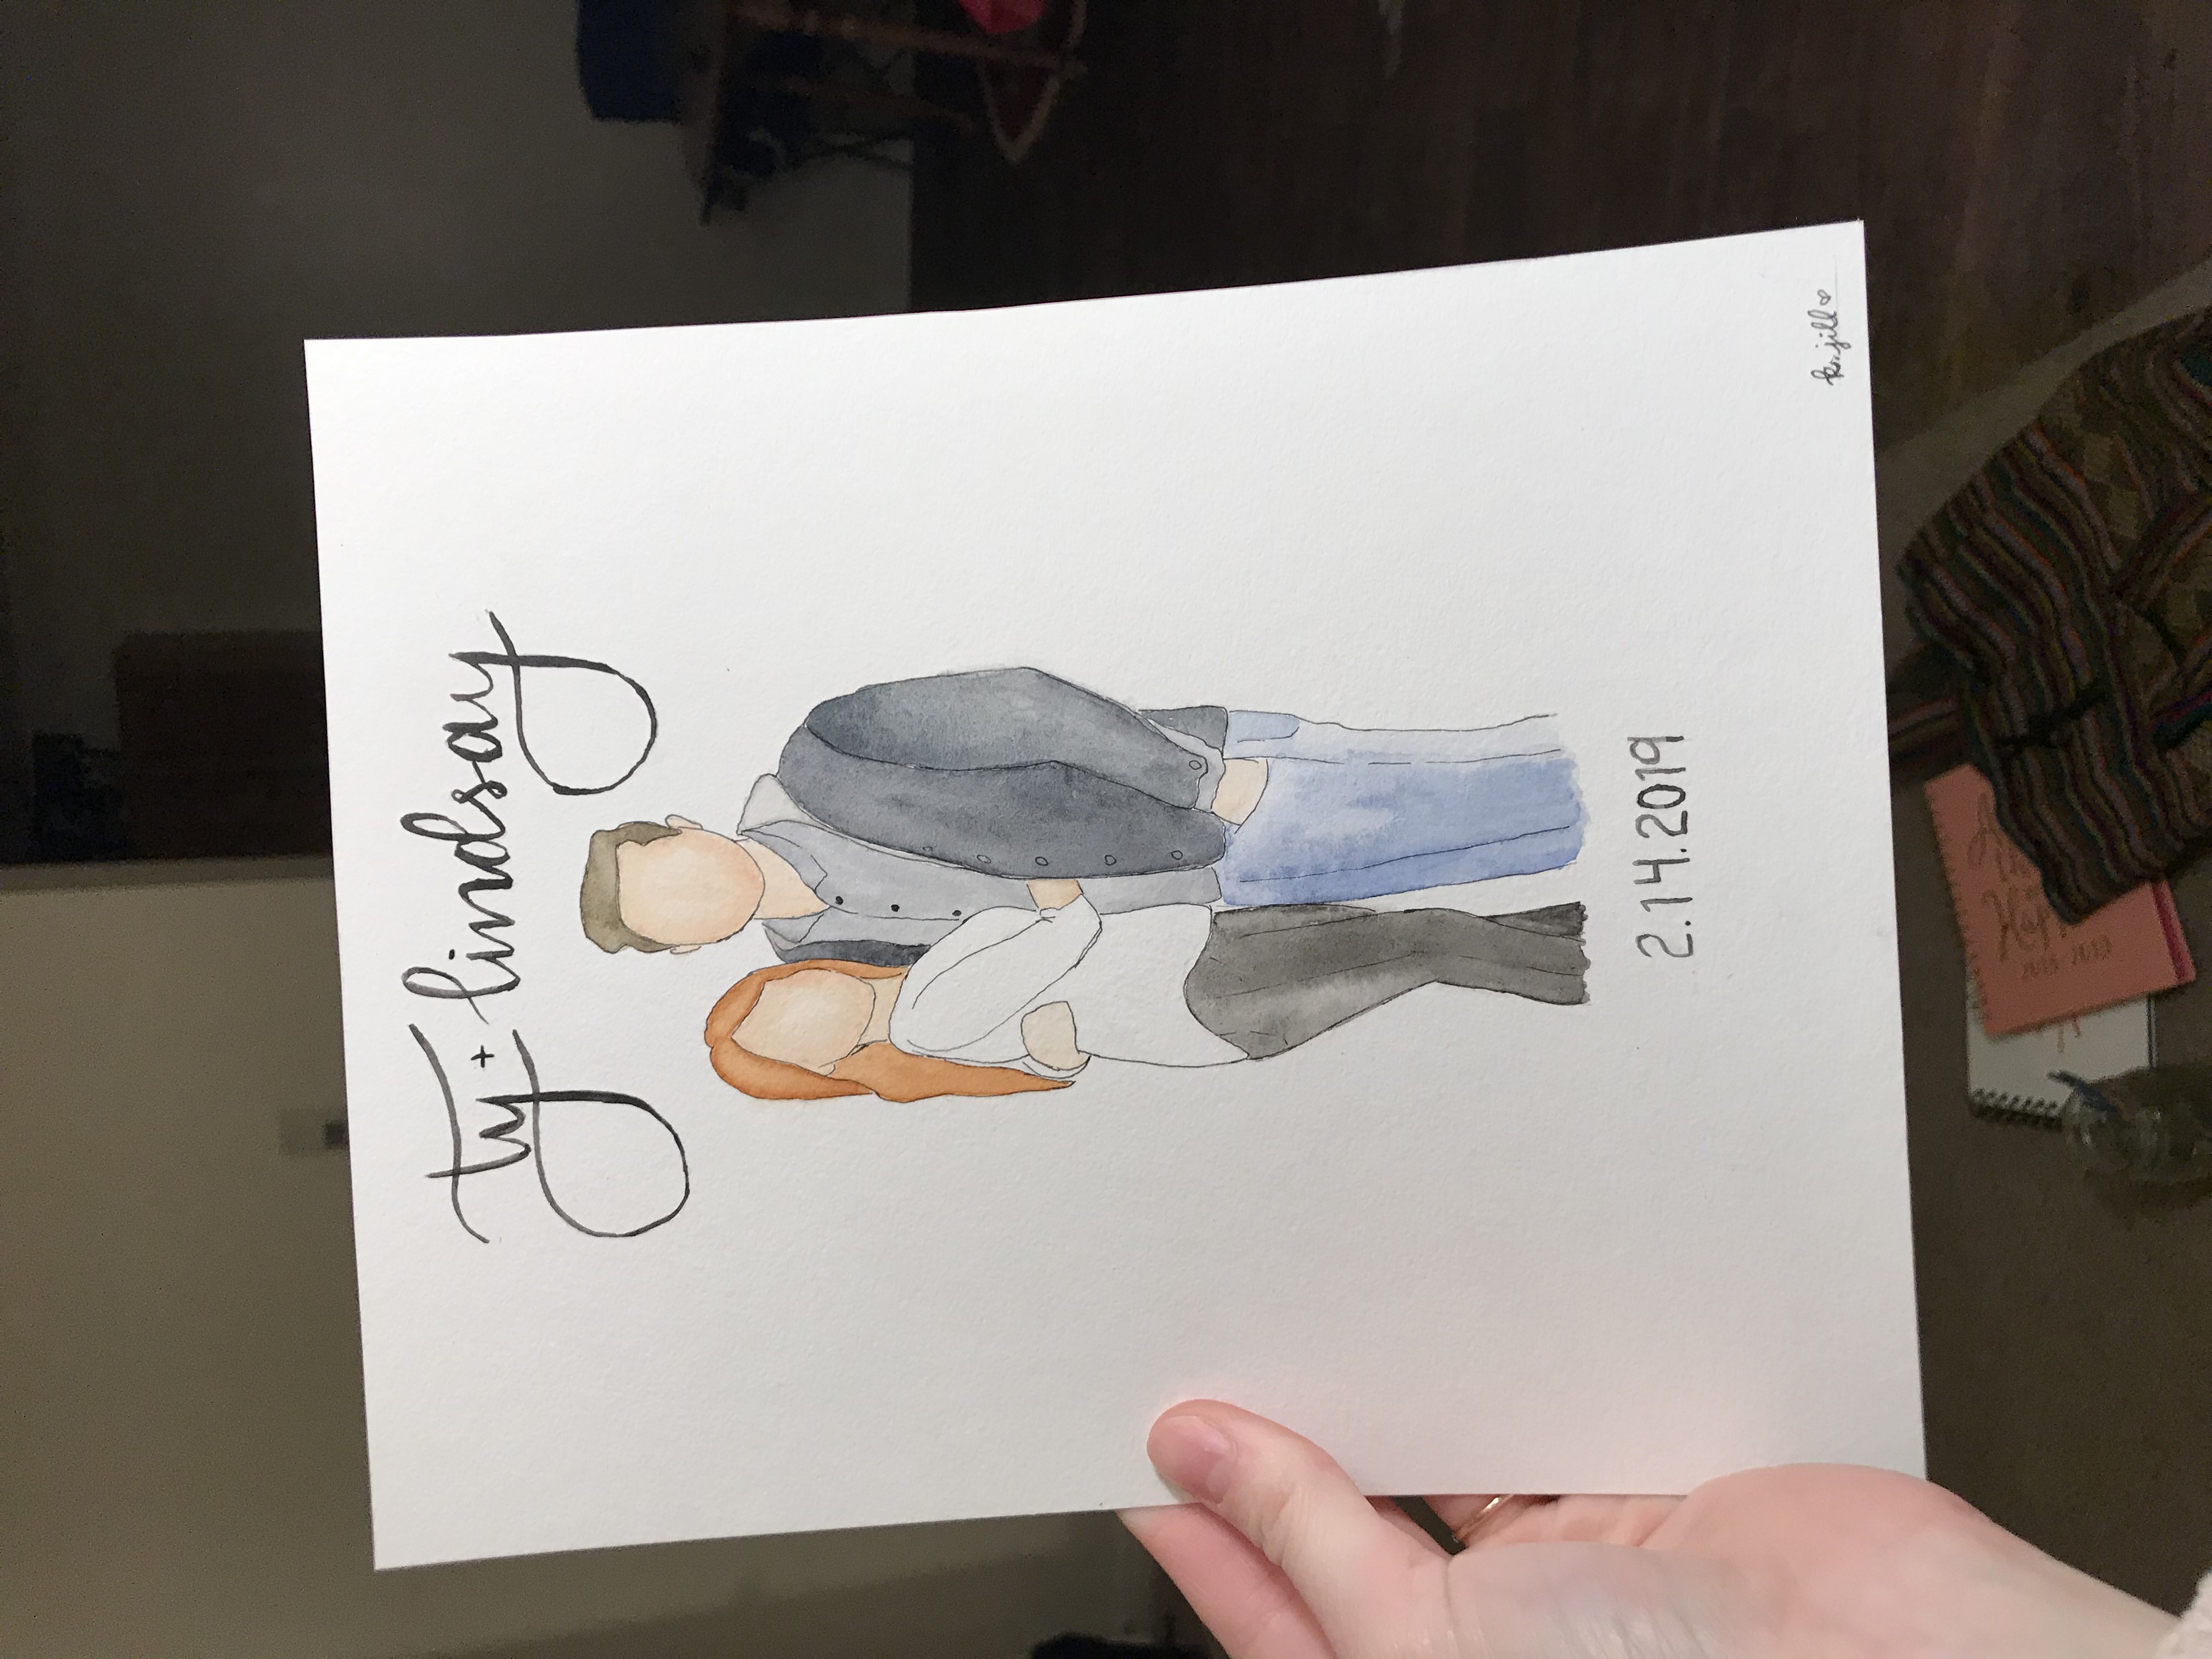 ty + lindsay
2.14.2019
k. jill